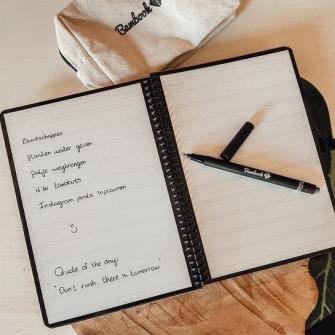 Bambook
Boodschappen
planten water geven
pakje wegbrengen
11.30 tandarts
Instagram posts inplannen
Quote of the day:
"Don't rush, there is tomorrow"
Bambook